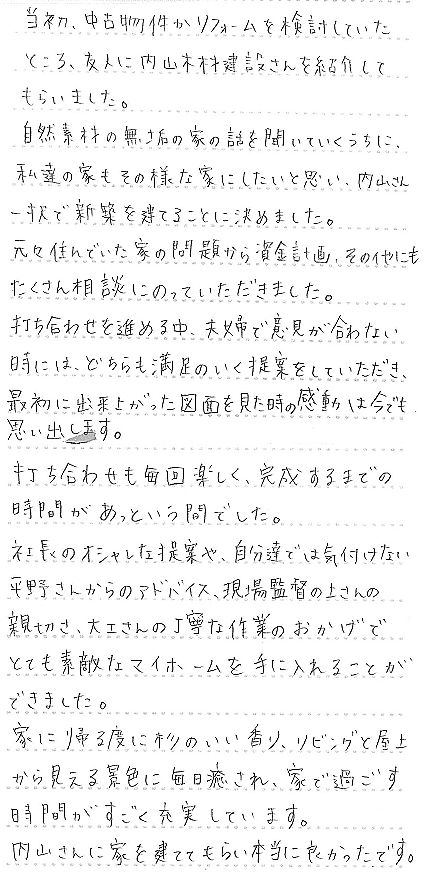 当初、中古物件かリフォームを検討していた
ところ、友人に内山木材建設さんを紹介して
もらいました。
自然素材の無垢の家の話を聞いていくうちに、
私達の家もその様な家にしたいと思い、内山さん
一択で新築を建てることに決めました。
元々住んでいた家の問題から資金計画、その他にも
たくさん相談にのっていただきました。
打ち合わせを進める中、夫婦で意見が合わない
時には、どちらも満足のいく提案をしていただき、
最初に出来上がった図面を見た時の感動は今でも
思い出します。
打ち合わせも毎回楽しく、完成するまでの
時間があっという間でした。
社長のオシャレな提案や、自分達では気付けない
平野さんからのアドバイス、現場監督の上さんの
親切さ、大工さんの丁寧な作業のおかげで
とても素敵なマイホームを手に入れることが
できました。
家に帰る度に杉のいい香り、リビングと屋上
から見える景色に毎日癒され、家で過ごす
時間がすごく充実しています。
内山さんに家を建ててもらい本当に良かったです。